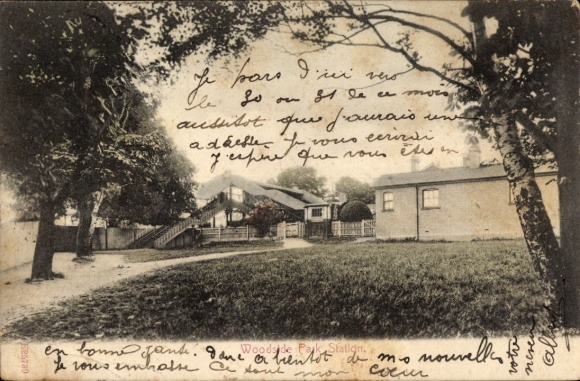 Je pars d'ici vers
le 30 ou 31 de ce mois
aussitot que j'aurais une
adresse je vous ecrirai
J'espère que vous êtes en
Woodside Park Station.
en bonne santé. Donc a bientot de mes nouvelles
Je vous embrasse de tout mon cœur
votre